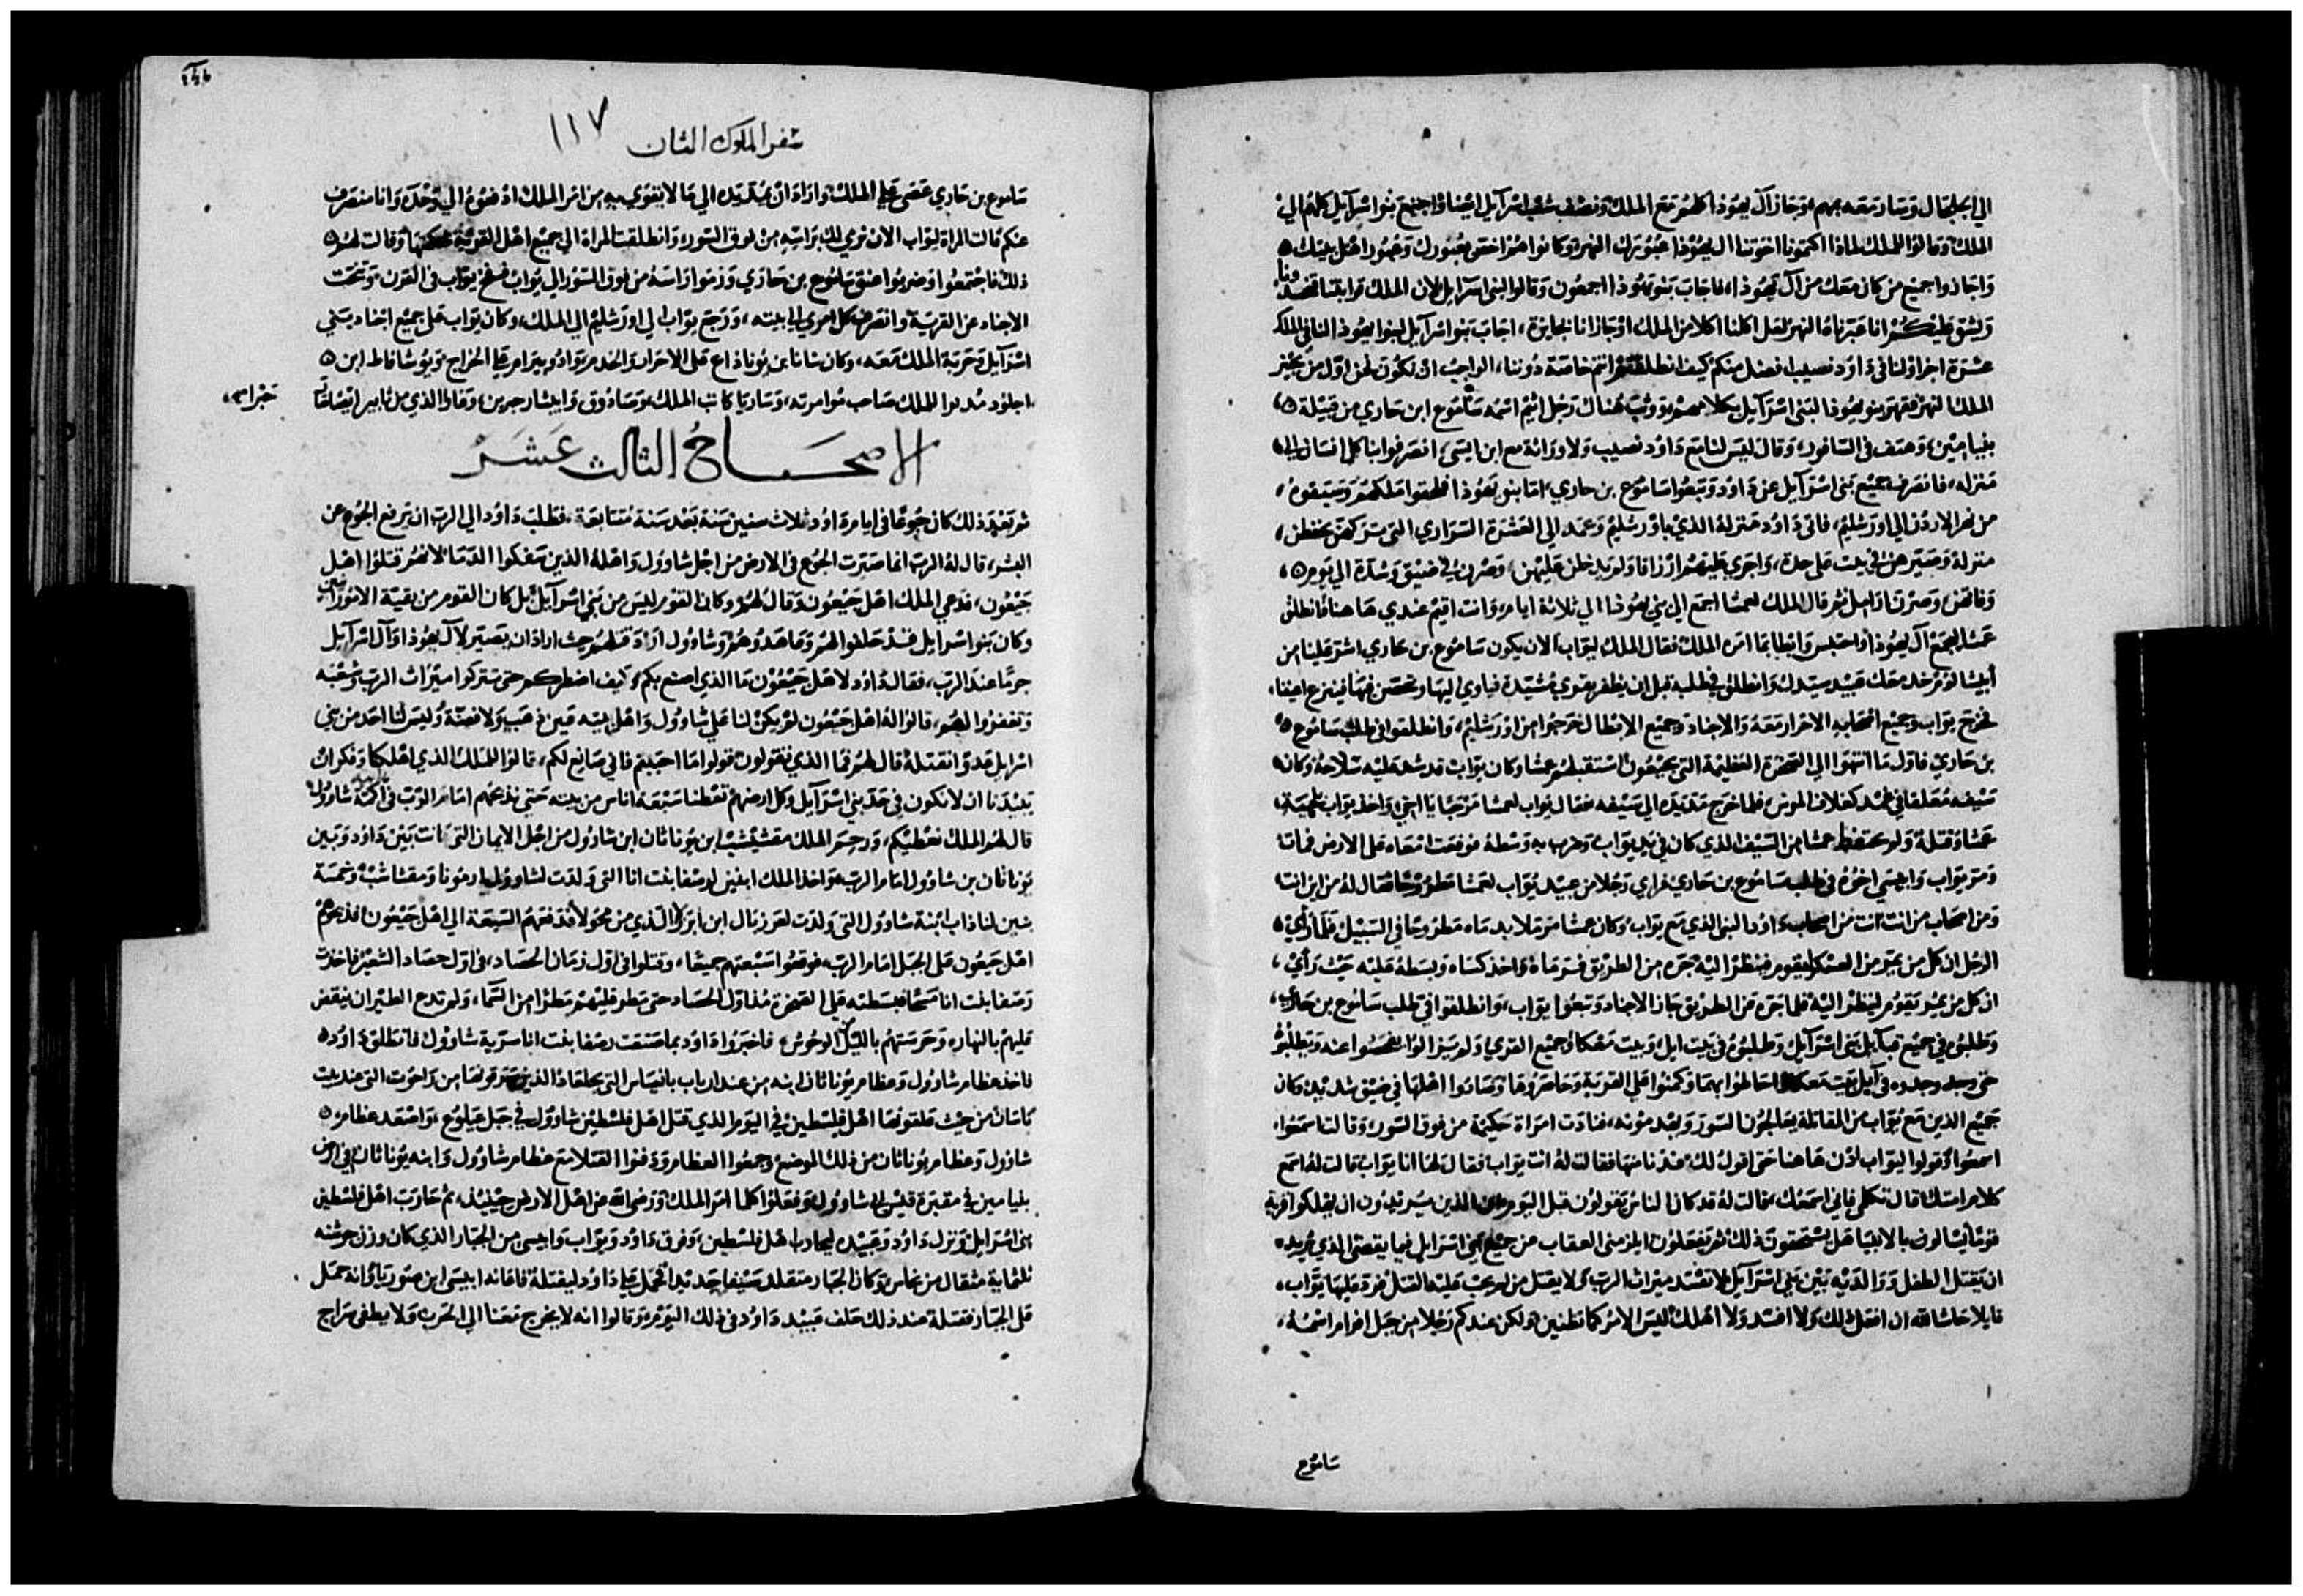 الي الجلجال وسار معه بمهم وجاز آل يهوذا كلهم مع الملك ونصف شعب اسرآيل ايضا واجتمع بنوا اسرآيل كلهم الي
الملك وقالوا للملك لماذا اكتمونا اخوتنا ال يهوذا عبورك النهر وكانوا هم احق بعبورك وعبور اهل بيتك
واجازوا جميع من كان معك من آل يهوذا فاجاب بنو يهوذا اجمعون وقالوا لبني اسرآيل لان الملك قرابتنا
ويشق عليكم انا عبرناه النهر لعل اكلنا اكلا من الملك او اجازنا بجايزة اجاب بنو اسرآيل لبنوا يهوذا لنا في الملك
عشرة اجزا ولنا في داود نصيب افضل منكم كيف انتم خاصة دوننا الواجب ان نكون نحن اول من
الملك النهر فقهر بنو يهوذا لبني اسرآيل بكلامهم ووثب هناك رجل اثيم اسمه سامُوع ابن حاري من قبيلة
بنيامين وهتف في السافور وقال ليس لنا مع داود نصيب ولا وراثة مع ابن ايسي انصرفوا بنا كل انسان الي
منزله فانصرف جميع بني اسرآيل عن داود وتبعوا ساموع بن حاري اما بنو يهوذا فلحقوا ملكهم وشيعوه
من نهر الاردن الي اورشليم فاتي داود منزله الذي باورشليم وعمد الي العشرة السراري التي تركهن يحفظن
منزله وصيرهن في بيت علي حدة واجري عليهم ارزاقا ولم يدخل عليهن وصرن في ضيق وشدة الي يوم
وفاتهن وصرن ارامل ثم قال الملك لعمشا اجمع الي بني يهوذا الي ثلاثة ايام وانت اقيم عندي هاهنا فانطلق
عمشا ليجمع آل يهوذا واحتبس وابطا بما امره الملك فقال الملك ليواب الان يكون ساموع بن حاري اشر علينا من
أبيشالوم خذ معك عبيد سيدك وانطلق في طلبه قبل ان يظفر بقري مشيدة فياوي اليها ويتحصن فيها فينزع اعيننا
فخرج يواب وجميع اصحابه الاحرار معه والاجناد وجميع الابطال خرجوا من اورشليم وانطلقوا في طلب ساموع
بن حاري فاول ما انتهوا الي الصخرة العظيمة التي بجبعون استقبلهم عمشا وكان يواب قد شد عليه سلاحه وكان
سيفه معلقا في غمد كغلاف الموس فلما خرج مد يده الي سيفه فقال يواب لعمشا مرحبا يا اخي واخذ يواب بلحية
عمشا وقتله ولم يحتفظ عمشا من السيف الذي كان في يد يواب وضربه به وسطه فوقعت امعاه علي الارض فمات
ومر يواب وابيسي اخوه في طلب ساموع بن حاري فراي رجلا من عبيد يواب لعمشا مطروحا فقال له من اين انت
ومن اصحاب من انت انت من اصحاب داود النبي الذي مع يواب وكان عمشا مرملا بدماه مطروحا في السبيل فلما رأي
الرجل ان كل من يمر من العسكر يقوم فينظر اليه جره من الطريق فسترماه واخذ كساه وبسطه عليه حيث رأي
ان كل من يمر يقوم لينظر اليه فلما جره من الطريق جاز الاجناد وتبعوا يواب وانطلقوا في طلب ساموع بن حاري
وطلبوه في جميع قبآيل بني اسرآيل وطلبوه في بيت ابل وبيت معكا وجميع القري ولم يزالوا يفحصوا عنه ويطلبوه
حتي وجدوه في آبل بيت معكا احاطوا بهما وكمنوا اهل القرية وحاصروها وصاروا اهلها في ضيق شديد وكان
جميع الذين مع يواب من المقاتلة يعالجون السور ويهدمونه فنادت امراة حكيمة من فوق السور وقالت اسمعوا
اسمعوا قولوا ليواب ادن هاهنا حتي اقول لك فدنا منها فقالت له انت يواب فقال لها انا يواب قالت له اسمع
كلام امتك قال تكلمي فاني اسمعك فقالت له قد كان الناس يقولون قبل اليوم الذين يريدون ان يهلكوا قرية
قوما يسالون بالانبيا هل يستحقون ذلك ثم تفعلون ابلزمني العقاب من جميع بني اسرايل فيما يقضي الذي تريد
ان يقتل الطفل ووالديه بين بني اسرآيل لا تفسد ميراث الرب ولا يقتل من لم يجب عليه القتل فرد عليها يواب
قايلا حاشا لله ان افعل ذلك ولا افسد ولا اهلك ليس الامر كما تظنين ولكن عندكم رجلا من جبل افرام اسمه
ساموع
سفر الملوك الثان ١١٧
ساموع بن حاري عصي علي الملك واراد ان يمد يده الي ما لا يقوي به من امر الملك ادفعوه الي وحده وانا منصرف
عنكم قالت المراة ليواب الان نرمي لك براسه من فوق السور وانطلقت المراة الي جميع اهل القرية بحكمتها وقالت لهم
ذلك فاجتمعوا وضربوا عنق ساموع بن حاري ورموا راسه من فوق السور الي يواب فنفخ يواب في القرن وتنحت
الاجناد عن القرية وانصرف كل امري الي بيته ورجع يواب الي اورشليم الي الملك وكان يواب علي جميع اجناد بني
اسرآيل وحربة الملك معه وكان سانا بن يوناداع علي الاحرار والخدم وادوبيرام علي الخراج ويوشافاط ابن
اجلود مدبر الملك صاحب موامرته وساريا كاتب الملك وصادوق وابيشار حبرين وقازا الذي من ثابير ايضا
حبرا اسمه
الاصحاحُ الثالث عشر
ثم بعد ذلك كان جوعًا في ايام داود ثلاث سنين سنة بعد سنة متتابعة فطلب داود الي الرب ان يرفع الجوع عن
البشر قال له الرب انما صيرت الجوع في الارض من اجل شاوول واهله الذين سفكوا الدما لانهم قتلوا اهل
جبعون فدعي الملك اهل جبعون وقال لهم وكان القوم ليس من بني اسرآيل بل كان القوم من بقية الامورانيين
وكان بنو اسرايل قد حلفوا لهم وعاهدوهم وشاوول اراد قتلهم حيث اراد ان يصير لآل يهوذا وآل اسرآيل
جرمًا عند الرب فقال داود لاهل جبعون ما الذي اصنع بكم وكيف اضطركم حتي تتركوا ميراث الرب وشعبه
وتغفروا لهم قالوا له اهل جبعون لم يكن لنا علي شاوول واهل بيته فين ذهب ولا فضة وليس لنا احد من بني
اسرايل عدوا نقتله قال لهم فما الذي تقولون قولوا ما احببتم فاني صانع لكم قالوا للملك الذي اهلكنا وفكر ان
يبيدنا ان لا نكون في حد بني اسرآيل وكل ارضهم تعطنا سبعة اناس من بيته حتي نذبحهم امام الرب في اكمة شاوول
قال لهم الملك نعطيكم ورحم الملك مفشبشب ابن يوناثان ابن شاوول من اجل الايمان التي كانت بين داود وبين
يوناثان بن شاوول امام الرب واخذ الملك ابنين لرصفا بنت انا التي ولدت لشاوول ارمونا ومفشاشب وخمسة
بنين لناداب ابنة شاوول التي ولدت لعوزيال ابن ابرزلا الذي من محولا فدفعهم السبعة الي اهل جبعون فذبحوهم
اهل جبعون علي الجبل امام الرب فوقعوا سبعتهم جميعًا وقتلوا في اول زمان الحصاد في اول حصاد الشعير فاخذت
رصفا بنت انا مسحًا فبسطته علي الصخرة مذ اول الحصاد حتي مطر عليهم مطرا من السما ولم تدع الطير ان ينقض
عليهم بالنهار وحرستهم بالليل من الوحوش فاخبروا داود بما صنعت رصفا بنت انا سرية شاوول فانطلق داود
فاخذ عظام شاوول وعظام يوناثان ابنه من عند ارباب بانياس التي بجلعاد الذين سرقوهما من راحوت التي عند بيت
باسان من حيث علقوهما اهل فلسطين في اليوم الذي قتل اهل فلسطين شاوول في جبل جيلبوع واصعد عظام
شاوول وعظام يوناثان من ذلك الموضع وجمعوا العظام ودفنوا القتلا مع عظام شاوول وابنه يوناثان في ارض
بنيامين في مقبرة قيس ابي شاوول وفعلوا كلما امر الملك ورضي الله عن اهل الارض حينيذ ثم حارب اهل فلسطين
بني اسرايل ونزل داود وعبيده ليحارب اهل فلسطين وفرق داود ويواب وابيسي من الجبار الذي كان وزن حوشنه
ثلثماية مثقال من نحاس وكان الجبار متقلد سيفا حديدا فحمل علي داود ليقتله فاعانه ابيسي ابن صوريا وانه حمل
علي الجبار فقتله عند ذلك حلف عبيد داود في ذلك اليوم وقالوا انه لا يخرج معنا الي الحرب ولا يطفي سراج